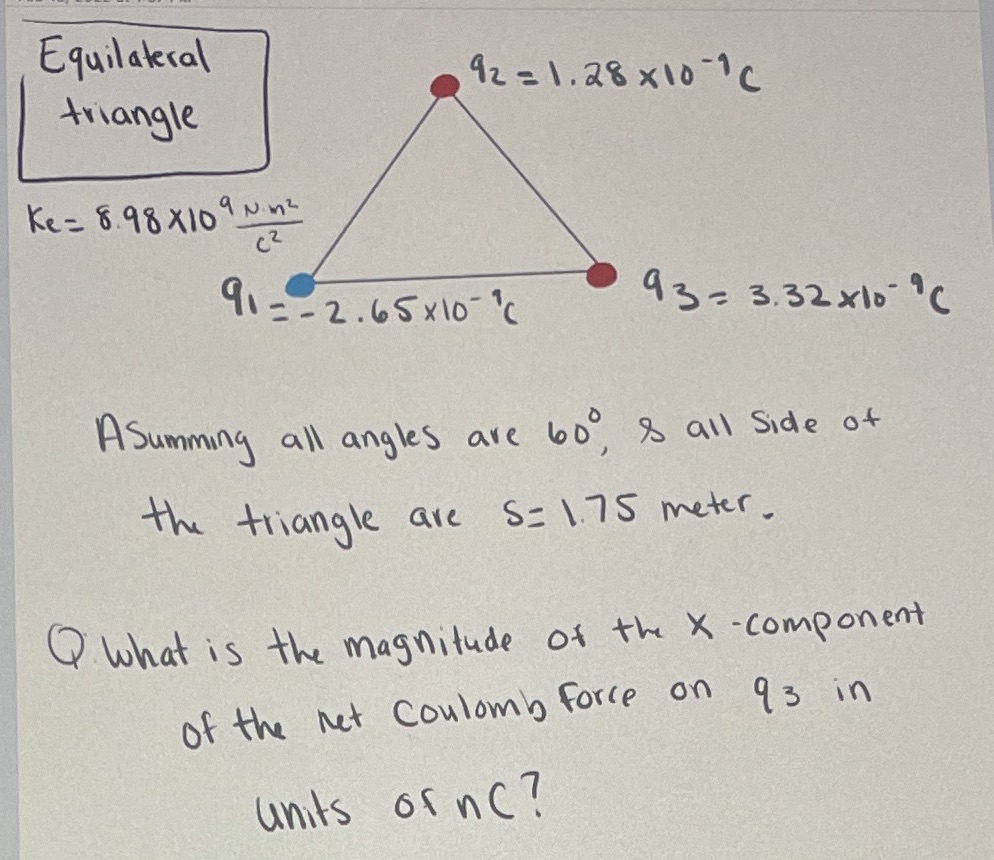 Equilateral
triangle
q2 = 1.28 x 10⁻⁹ C
Ke = 8.98 x 10⁹ N·m²/C²
q1 = - 2.65 x 10⁻⁹ C
q3 = 3.32 x 10⁻⁹ C
ASumming all angles are 60°, & all Side of
the triangle are S= 1.75 meter.
Q. What is the magnitude of the X -component
of the net Coulomb Force on q3 in
units of nC?